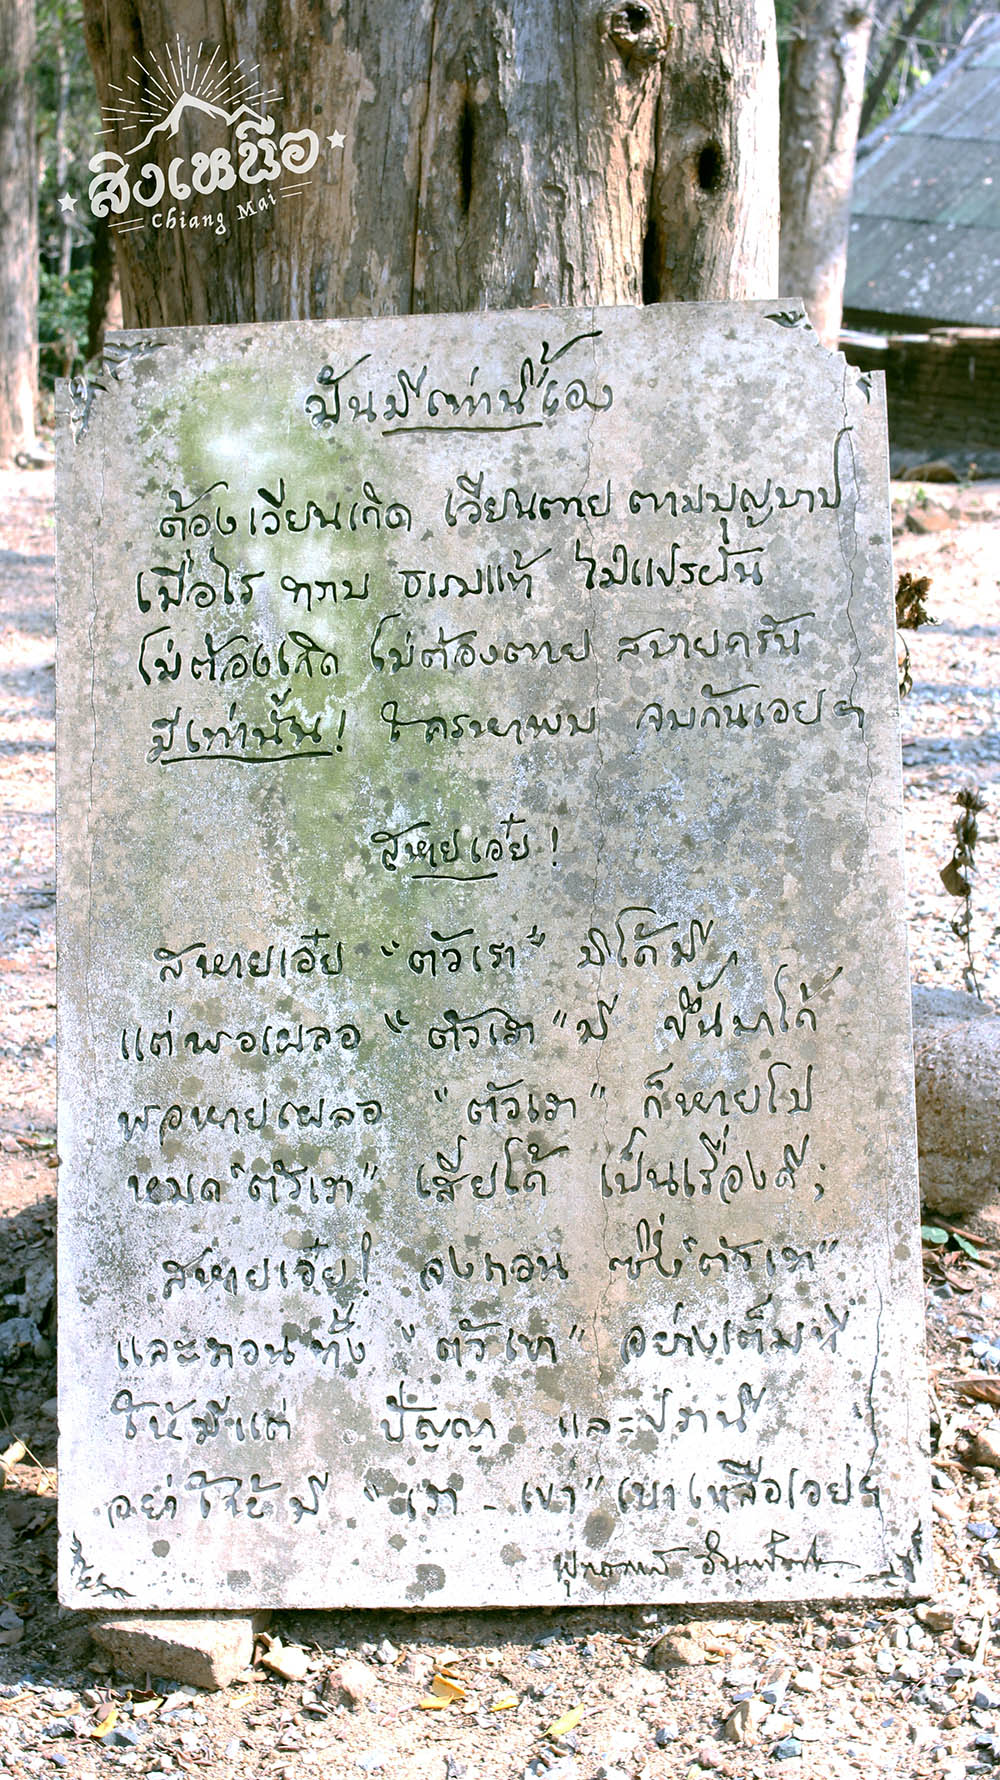 สิงเหนือ
Chiang Mai
มันมีเท่านี้เอง
ต้องเวียนเกิด เวียนตาย ตามบุญบาป
เมื่อไร ทราบ ธรรมแท้ ไม่แปรผัน
ไม่ต้องเกิด ไม่ต้องตาย สบายครัน
มีเท่านั้น! ใครหาพบ จบกันเอย ฯ
สหายเอ๋ย!
สหายเอ๋ย "ตัวเรา" มิได้มี,
แต่พอเผลอ "ตัวเรา" มี ขึ้นมาได้
พอหายเผลอ "ตัวเรา" ก็หายไป
หมด "ตัวเรา" เสียได้ เป็นเรื่องดี;
สหายเอ๋ย! จงถอน ซึ่ง "ตัวเรา"
และถอนทั้ง "ตัวเขา" อย่างเต็มที่
ให้มีแต่ ปัญญา และปรานี
อย่าให้มี "เรา - เขา" เบาเหลือเอย ฯ
พุทธทาส อินทปัญโญ